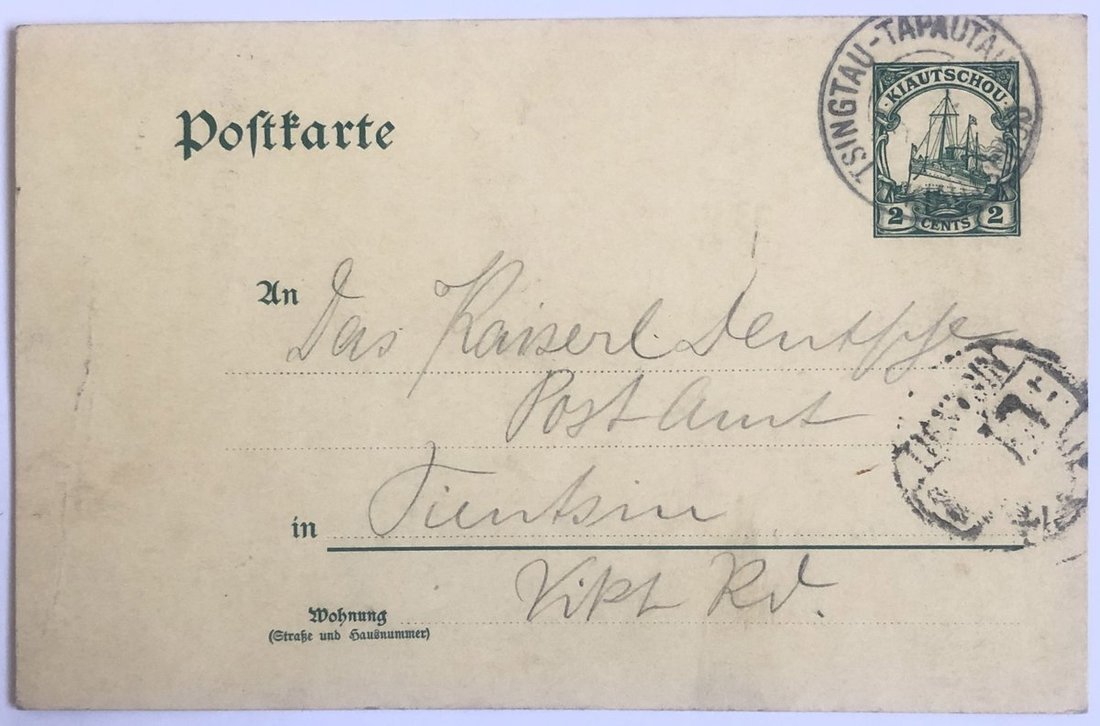 Postkarte
TSINGTAU-TAPAUTAU
KIAUTSCHOU
2 CENTS 2
An Das Kaiserl. Deutsche
Post Amt
in Tientsin
Vikt Rd.
Wohnung
(Straße und Hausnummer)
TIENTSIN